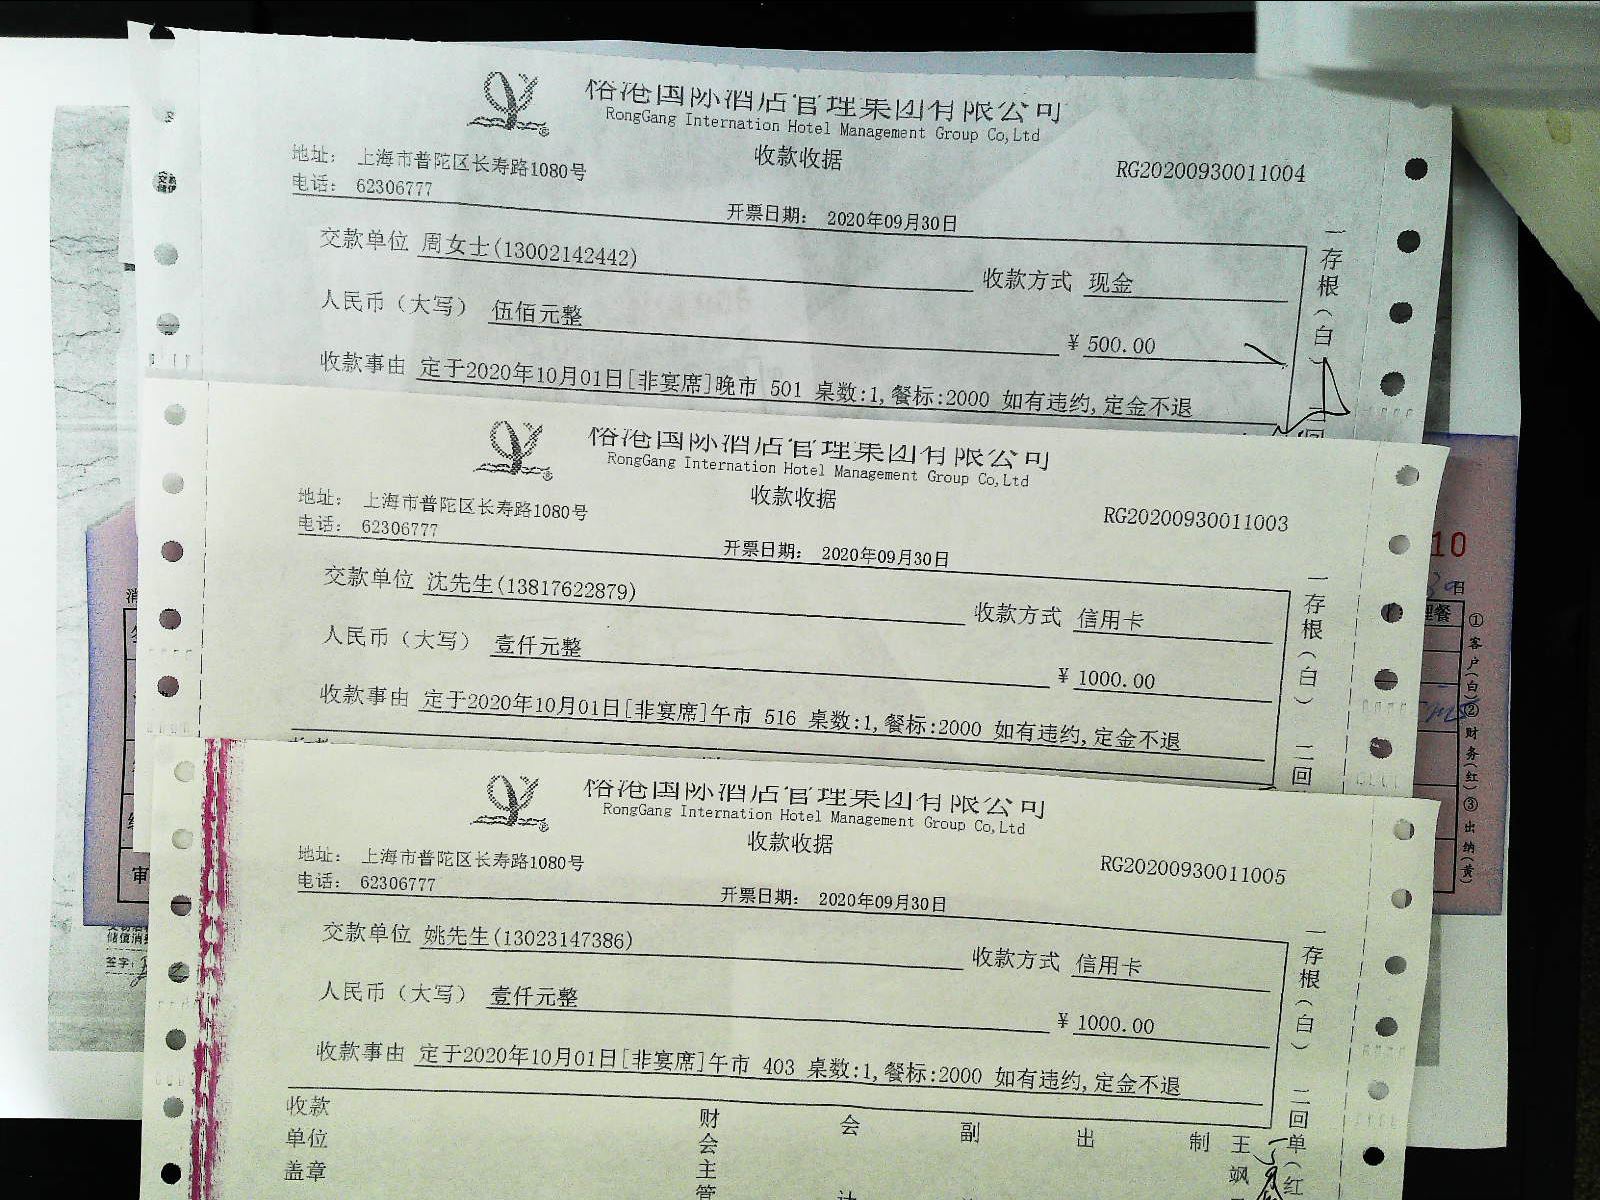 国际酒店管理集团有限公司
RongGang Internation Hotel Management Group Co,Ltd
收款收据
地址: 上海市普陀区长寿路1080号
RG20200930011004
电话: 62306777
开票日期: 2020年09月30日
交款单位 周女士(13002142442)
收款方式 现金
人民币(大写) 伍佰元整
¥ 500.00
收款事由 定于2020年10月01日[非宴席]晚市 501 桌数:1,餐标:2000 如有违约,定金不退
一存根(白)
国际酒店管理集团有限公司
RongGang Internation Hotel Management Group Co,Ltd
收款收据
地址: 上海市普陀区长寿路1080号
RG20200930011003
电话: 62306777
开票日期: 2020年09月30日
交款单位 沈先生(13817622879)
收款方式 信用卡
人民币(大写) 壹仟元整
¥ 1000.00
收款事由 定于2020年10月01日[非宴席]午市 516 桌数:1,餐标:2000 如有违约,定金不退
一存根(白) 二回
国际酒店管理集团有限公司
RongGang Internation Hotel Management Group Co,Ltd
收款收据
地址: 上海市普陀区长寿路1080号
RG20200930011005
电话: 62306777
开票日期: 2020年09月30日
交款单位 姚先生(13023147386)
收款方式 信用卡
人民币(大写) 壹仟元整
¥ 1000.00
收款事由 定于2020年10月01日[非宴席]午市 403 桌数:1,餐标:2000 如有违约,定金不退
一存根(白) 二回单(红
收款单位盖章
财会主管
会
副
出
制
王飒
10
日
餐
①客户(白)②财务(红)③出纳(黄)
审
签字: